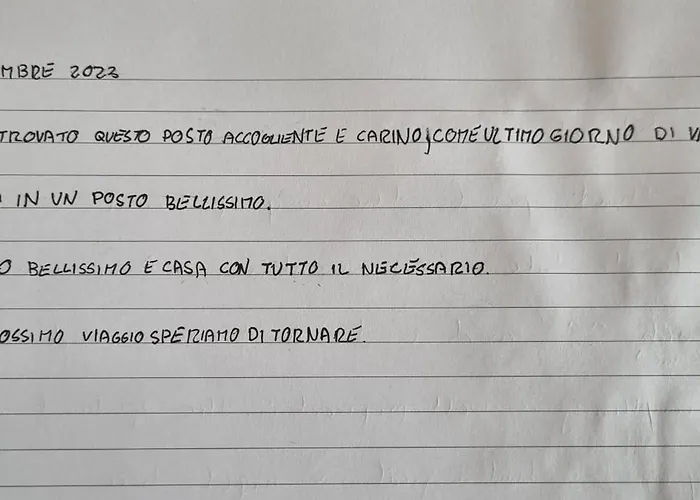 MBRE 2023
TROVATO QUESTO POSTO ACCOGLIENTE E CARINO, COME ULTIMO GIORNO DI VA
IN UN POSTO BELLISSIMO.
O BELLISSIMO E CASA CON TUTTO IL NECESSARIO.
OSSIMO VIAGGIO SPERIAMO DI TORNARE.